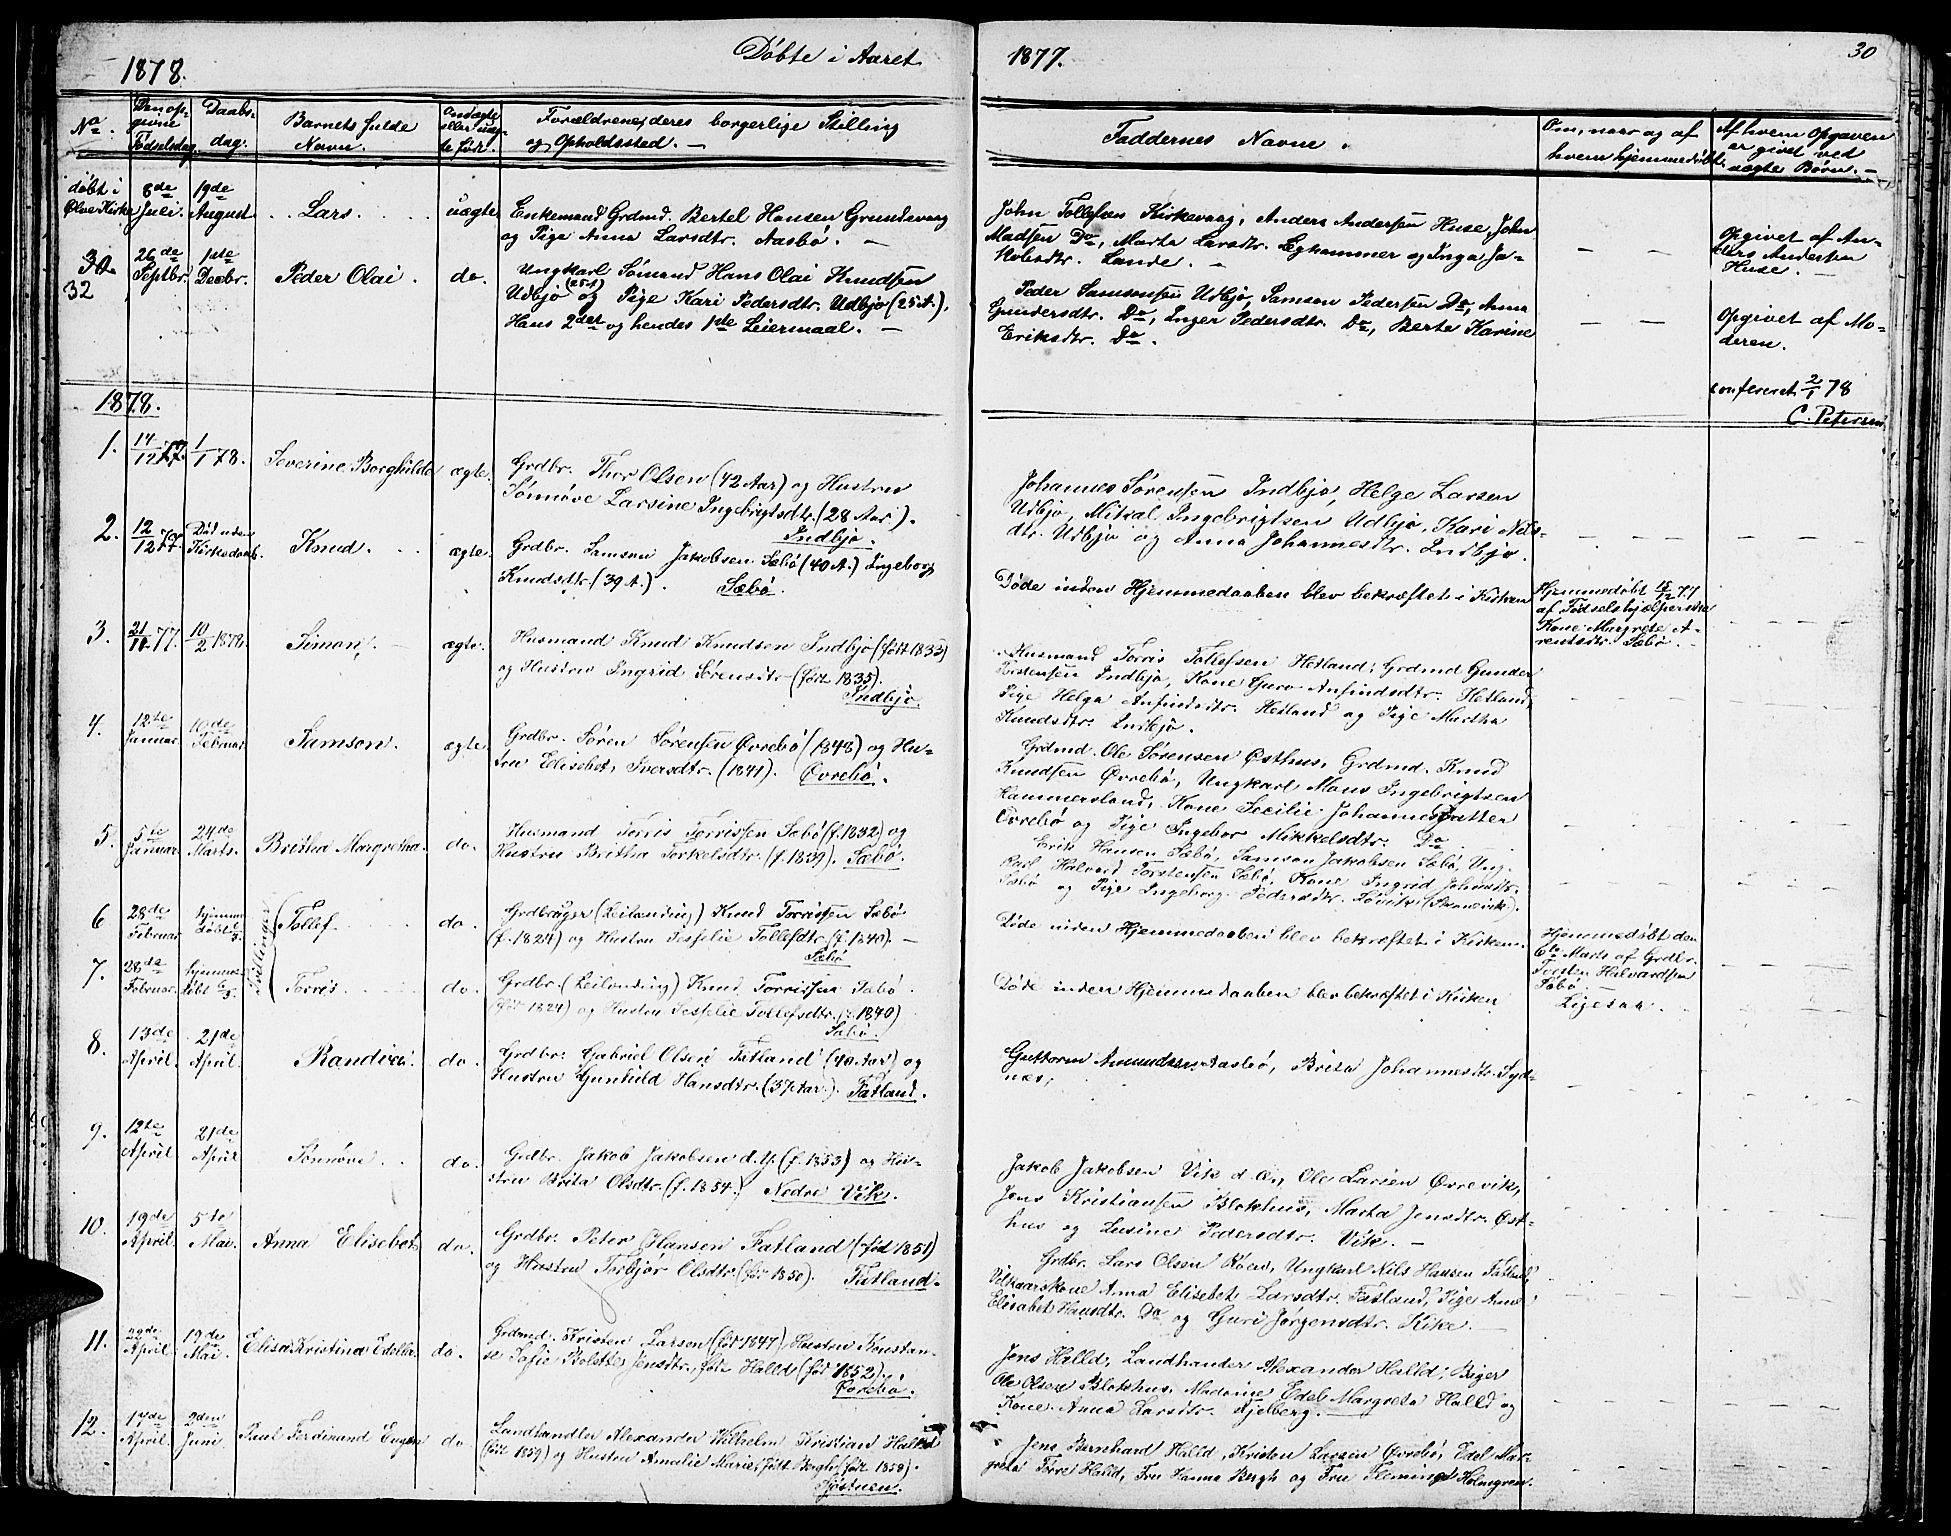 1878.
Døbte i Aaret
1877.
30
No.
Den op-
givne
Fødselsdag.
Daabs-
dag.
Barnets fulde
Navn.
Om ægte
eller uæg-
te født.
Forældrene, deres borgerlige Stilling
og Opholdssted. —
Faddernes Navne.
Om, naar og af
hvem hjemmedøbt.
Af hvem Opgaven
er givet ved
uægte Børn. —
døbt i
Ølve Kirke
8de
Juli.
19de
August
Lars.
uægte
Enkemand Grdmd. Bertel Hansen Grundevaag
og Pige Anna Larsdtr. Aasbø. —
John Tollefsen Kirkevaag, Anders Andersen Huse, John
Madsen Do, Marta Larsdtr. Egkammer og Inga Ja-
kobsdtr. Lande.
Opgivet af An-
ders Andersen
Huse. —
32
26de
Septbr.
1ste
Decbr.
Peder Olai.
do.
Ungkarl Sømand Hans Olai Knudsen
Udbjo (25 A) og Pige Kari Pedersdtr. Udbjo (25 A.).
Hans 2det og hendes 1ste Leiermaal. —
Peder Samsonsen Udbjo, Samson Pedersen Do, Anna
Gundersdtr. Do, Inger Pedersdtr. Do, Berte Karine
Eriksdtr. Do.
Opgivet af Mo-
deren.
confereret 2/1 78
C. Petersen
1878.
1.
14/12 77.
1/1 78.
Severine Borghilde
ægte.
Grdbr. Thor Olsen (42 Aar) og Hustru
Sønnøve Larsine Ingebrigtsdtr. (28 Aar).
Indbjo.
Johannes Sørensen Indbjo, Helge Larsen
Udbjo, Mikal Ingebrigtsen Udbjo, Kari Nils-
dtr. Udbjo og Anna Johannesdtr. Indbjo.
2.
12/12 77
Død uden
Kirkedaab.
Knud.
ægte.
Grdbr. Samson Jakobsen Sæbø (40 A.) Ingeborg
Knudsdtr. (39 A.). Sæbø.
Døde inden Hjemmedaaben blev bekræftet i Kirken
Hjemmedøbt 15/12 77
af Fødselshjælperske
Kone Margrete A-
rentsdtr. Sæbø.
3.
77.
10/2 1878.
Simon.
ægte.
Husmand Knud Knudsen Indbjo (født 1833)
og Hustru Ingrid Sørensdtr (født 1835).
Indbjo.
Husmand Torris Tollefsen Hetland, Grdmd Gunder
Torstensen Indbjo, Kone Guro Anfindsdtr. Hetland,
Pige Helga Anfindsdtr. Hetland og Pige Martha
Knudsdtr. Indbjo.
4.
12te
Januar.
10de
Februar.
Samson.
ægte.
Grdbr. Søren Sørensen Øvrebø (1848) og Hu-
stru Elisebet Iversdtr. (1841). Øvrebø.
Grdmd. Ole Sørensen Østhus, Grdmd. Knud
Knudsen Øvrebø, Ungkarl Mons Ingebrigtsen
Hammersland, Kone Secilie Johannesdatter
Øvrebø og Pige Ingebor Mikkelsdtr. Do
5.
5te
Januar.
24de
Marts.
Britha Margretha.
do.
Husmand Torris Torrissen Sæbø (f. 1832) og
Hustru Britha Torkelsdtr. (f. 1839). Sæbø.
Erik Hansen Sæbø, Samson Jakobsen Sæbø, Ung-
karl Halvard Torstensen Sæbø, Kone Ingrid
Sæbø og Pige Ingeborg Pedersdtr. (Skonevik).
6
28de
Februar
hjemme
døbt 6/3.
Tvillinger
Tollef.
do.
Grdbruger (Leilending) Knud Torrissen Sæbø
(f. 1824) og Hustru Tollefsdtr (f. 1840). —
Sæbø
Døde inden Hjemmedaaben blev bekræftet i Kirken.
Hjemmedøbt den
6te Marts af Grdbr.
Torsten Halvardsen
Sæbø. —
7.
28de
Februar.
hjemme
døbt 6/3.
Torris.
do.
Grdbr. (Leilending) Knud Torrissen Sæbø.
(født 1824) og Hustru Tollefsdtr. 1840)
Sæbø.
Døde inden Hjemmedaaben blev bekræftet i Kirken
Ligesaa.
8.
13de
April.
21de
April.
Randvei.
do.
Grdbr. Gabriel Olsen Fatland (40 Aar) og
Hustru Gunhild Hansdtr. (37 Aar.). Fatland.
Guttorm Amundsen Aasbø, Brita Johannesdtr. Syd-
næs,
9.
12te
April.
21de
April.
Sønnøve.
do.
Grdbr. Jakob Jakobsen d. y. (f. 1853) og Hu-
stru Brita Olsdtr. (f. 1854.) Nedre Vik.
Jakob Jakobsen Vik d. æ., Ole Larsen Øvrevik,
Jens Kristiansen Blokhus, Marta Jensdtr. Øst-
hus og Lusine Pedersdtr. Vik. —
10.
19de
April.
5te
Mai.
Anna Elisebet
do.
Grdbr. Peter Hansen Fatland (født 1851)
og Hustru Torbjør Olsdtr. (født 1850). Fatland.
Grdbr. Lars Olsen Røen, Ungkarl Nils Hansen Fatland,
Vilkaarskone Anna Elisebet Larsdtr. Fatland, Pige Anne
Elisabet Hansdtr. Do og Guri Jørgensdtr. Kike. —
11.
April.
19de
Mai.
Elisa Kristina Edella.
do.
Grdmd. Kristen Larsen (født 1847) Hustru Konstan-
se Sofie Bolette Jensdtr. født Halld (født 1852).
Øvrebø.
Jens Halld, Landhandler Alexander Halld, Piger
Ole Olsen Blokhus, Madame Edel Margreta Halld og
Kone Anna Larsdtr. Kjelberg.
12.
17de
April.
2den
Juni
Paul Ferdinand Eugen
do.
Landhandler Alexander Wilhelm Kristian Halld
(født 1859) og Hustru Amalie Marie, født Bergh (født 1858).
Jens Bernhard Halld, Kristen Larsen Øvrebø, Edel Mar-
greta Tørre Halld, Fru Hanna Bergh og Fru Fleming Holmgren.